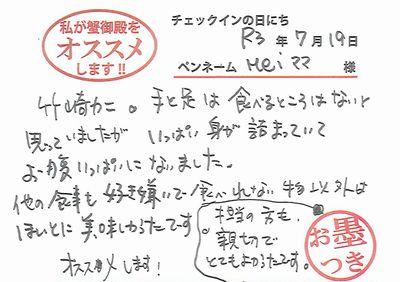 私が蟹御殿を
オススメ
します!!
チェックインの日にち
R3年7月19日
ペンネーム Meiママ 様
竹崎カニ。手と足は食べるところはないと
思っていましたが いっぱい身が詰まっていて
お腹いっぱいになりました。
他の食事も好き嫌いで食べれない物以外は
ほんとに美味しかったです。
オススメします!
担当の方も、
親切で
とてもよかったです。
お墨
つき